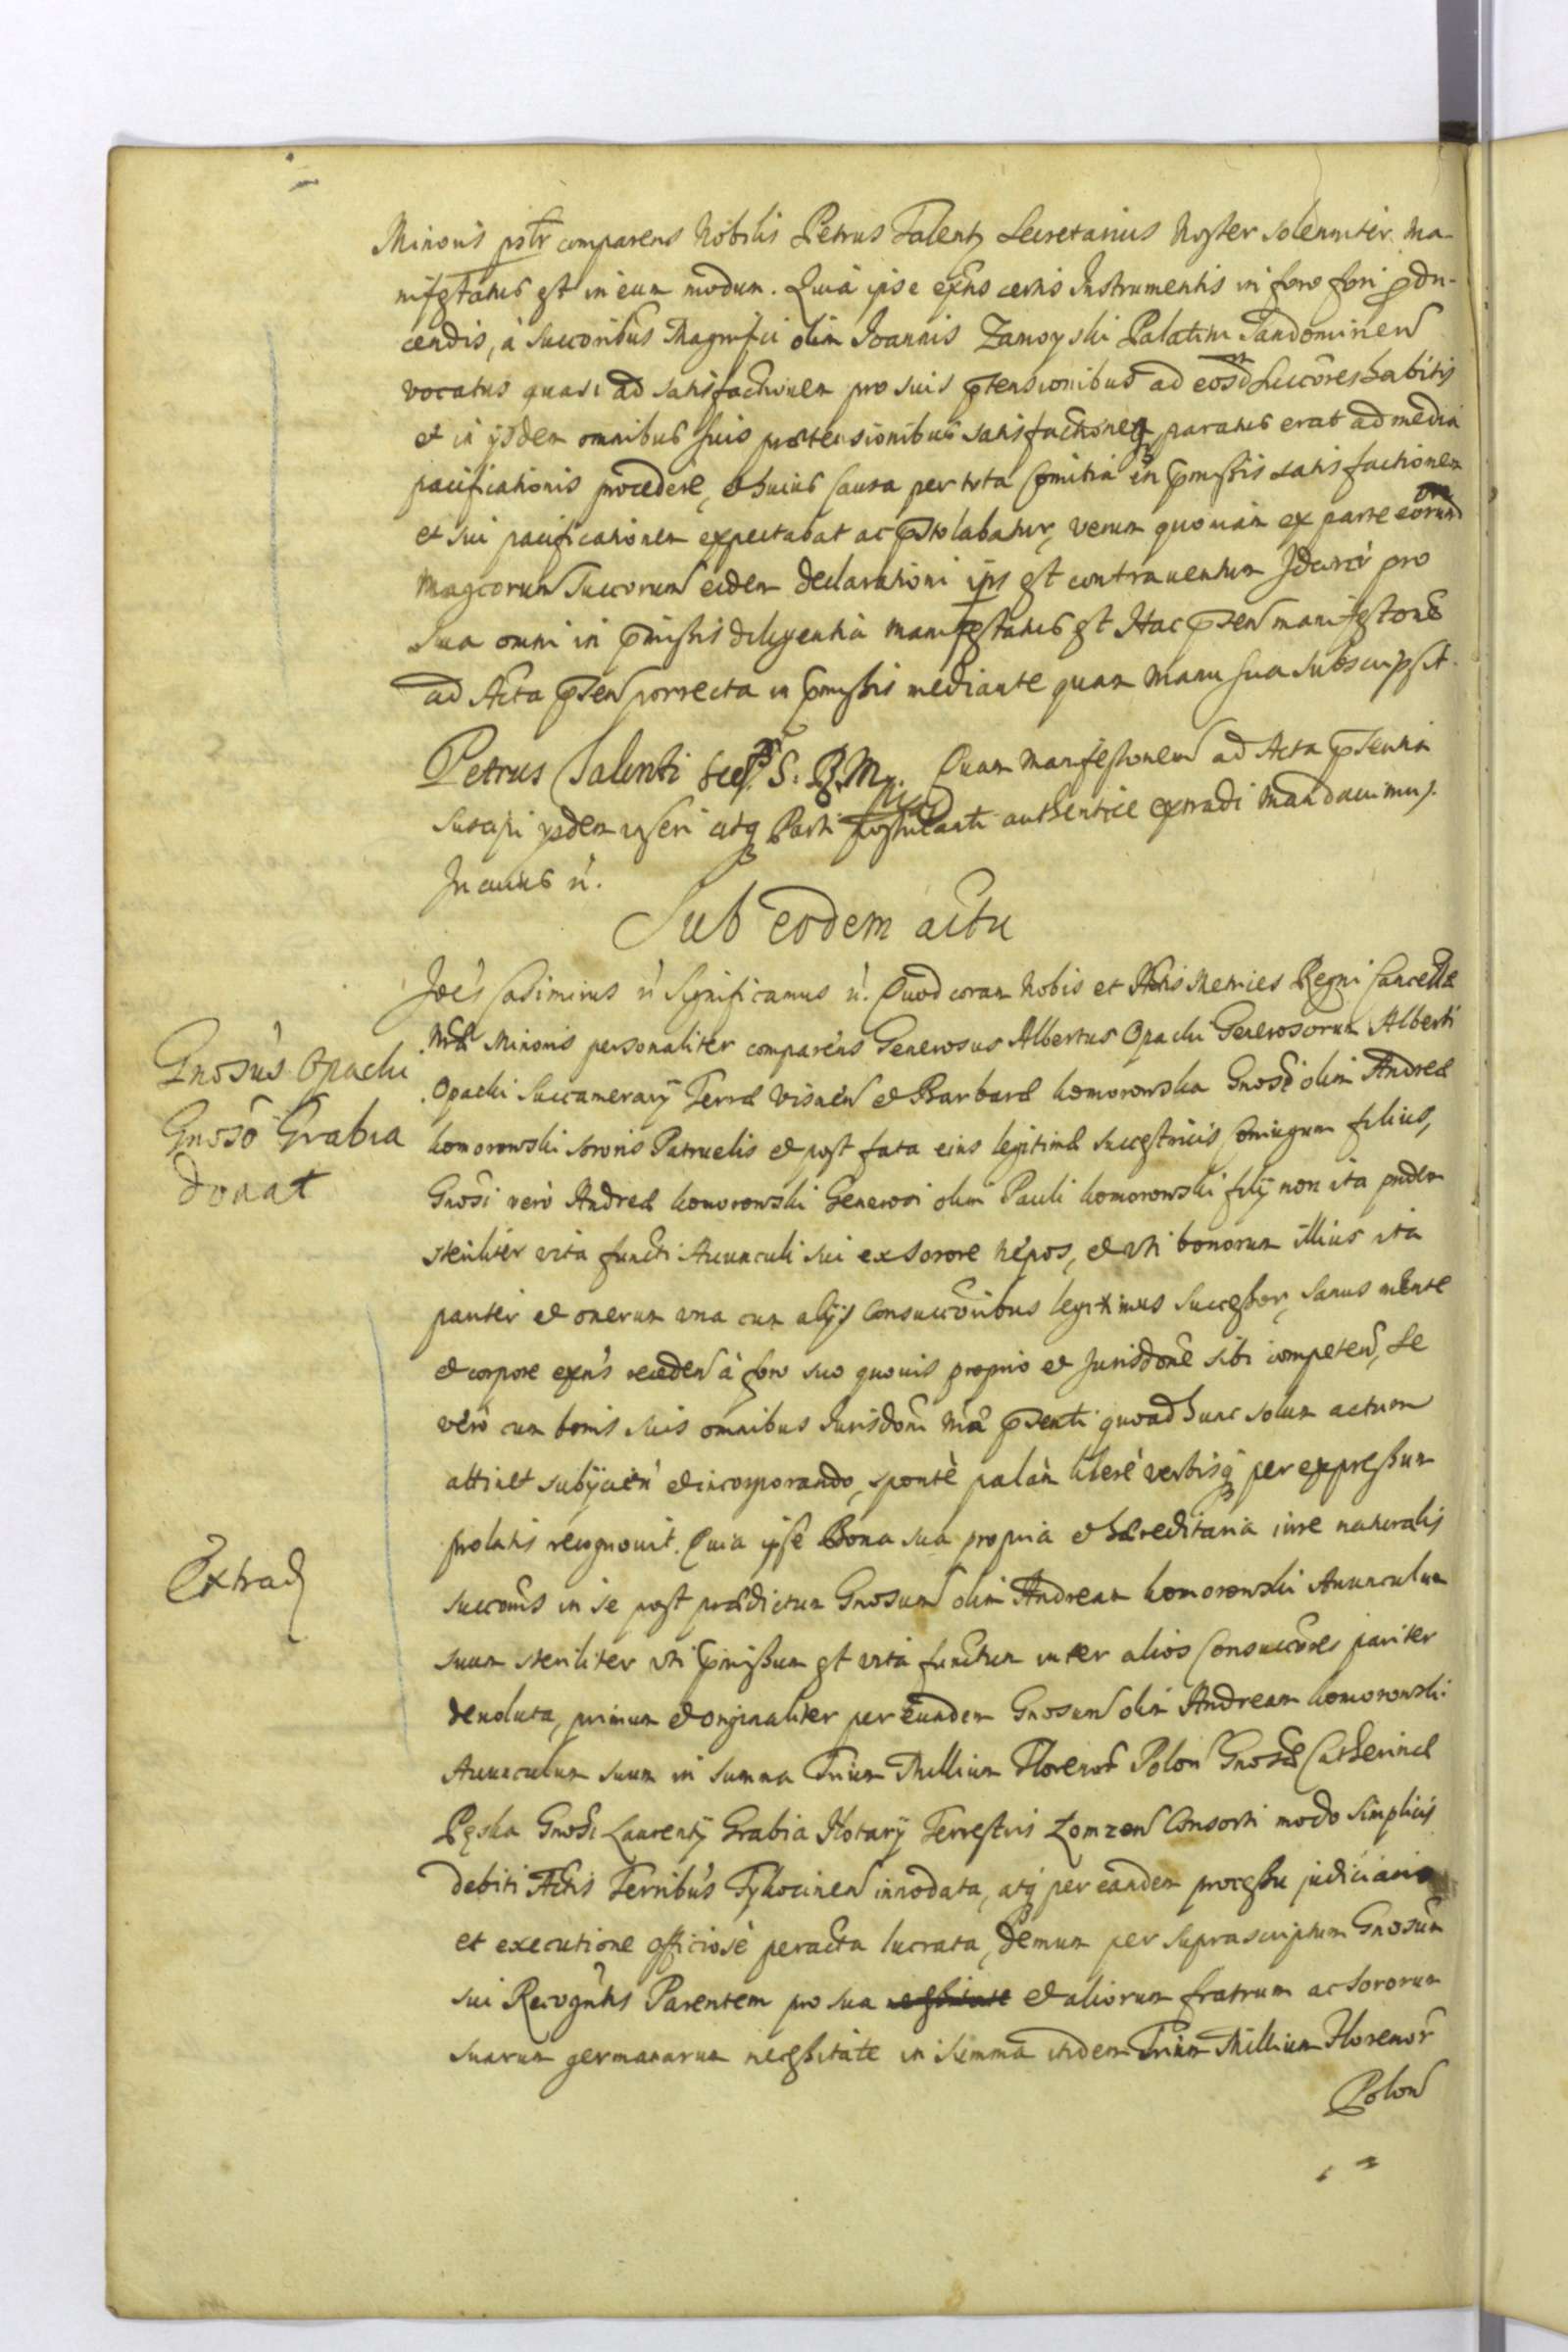 Minoris pstr comparens Nobilis Petrus Talenty Secretarius Noster solenniter ma-
nifestatus est in eum modum. Quia ipse exñs certis Instrumentis in foro fori produ-
cendis, à succoribus Magnifici olim Joannis Zamoyski Palatini Sandomirien
vocatus quasi ad satisfactionem pro suis ptensionibus ad eosd Succôres habitis
et in ijsdem omnibus suis prætensionibus satisfactionem paratus erat ad media
pacificationis procedere, et huius causa per tota Comitia in pmissis satisfactionem
et sui pacificationem expectabat ac pstolabatur, verum quoniam ex parte eorund
Magcorum Succorum eidem declarationi ips est contrauentum Idcirco pro
sua omni in pmissis diligentia manifestatus est Hac psen manifestone
ad Acta psen porrecta in pmissis mediante quam manu sua subscripsit.
Petrus Talenti Secr. S. R. M. Quam manifestonem ad Acta psentia
suscipi ysdem inseri atq Parti postulanti authentice extradi mandauimus.
In cuius ñ.
Sub eodem actu
Joês Casimirus ñ Significamus ñ. Quod coram Nobis et Actis Metrices Regni Cancellæ
Nræ Minoris personaliter comparens Generosus Albertus Opacki Generosorum Alberti
Gnosus Opacki
Opacki Succamerarij Terræ Visnen et Barbaræ Komorowska Gnosi olim Andreæ
Gnoso Grabia
Komorowski sororis Patruelis et post fata eius legitimæ successtricis Coniugum filius,
donat
Gnosi verò Andreæ Komorowski Generosi olim Pauli Komorowski filij non ita pridem
steriliter vita functi Auunculi sui ex Sorore Népos, et vti bonorum illius ita
pariter et onerum vna cum alijs Consuccoribus legitimus Successor, sanus mente
et corpore exñs receden à foro suo quouis proprio et Jurisdone sibi competen, Se
verò cum bonis suis omnibus Jurisdoni præ psenti quoad hunc solum actum
attinet subijcien et incorporando, sponte palàm liberè verbisq per expressum
prolatis recognouit. Quia ipse Bona sua propria et hæreditaria iure naturalis
Extrad
succonis in se post prædictum Gnosum olim Andream Komorowski Auunculum
suum steriliter vti pmissum est vita functum inter alios Consuccores pariter
deuoluta, primum et originaliter per eundem Gnosum olim Andream Komorowski
Auunculum suum in summa Trium Millium Florenor Polon Gnosæ Catherinæ
Pęska Gnosi Laurentij Grabia Notarij Terrestris Łomzen Consorti modo simplicis
debiti Actis Terribus Tykocinen innodata, atq per eandem processu judiciario
et executione officiosè peracta lucrata, demum per suprascriptum Gnosum
sui Recognŷtis Parentem pro sua necessitate et aliorum fratrum ac Sororum
suarum germanarum necessitate in Summa itidem Trium Millium Florenor
Polon